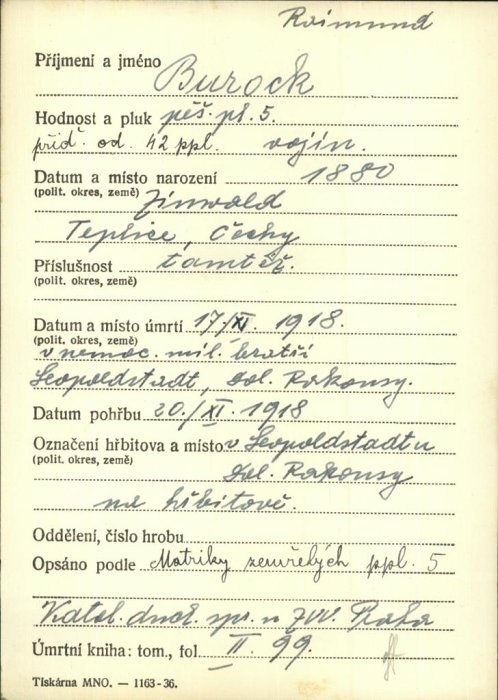 Raimund
Příjmení a jméno Burock
Hodnost a pluk pěš. pl. 5.
příď. od. 42 ppl. vojín.
Datum a místo narození 1880
(polit. okres, země) Zinwald
Teplice, Čechy
Příslušnost tamtéž.
(polit. okres, země)
Datum a místo úmrtí 17./XI. 1918.
(polit. okres, země)
v nemoc. mil. bratří
Leopoldstadt, dol. Rakousy.
Datum pohřbu 20./XI. 1918
Označení hřbitova a místo v Leopoldstadtu
(polit. okres, země) dol. Rakousy
na hřbitově.
Oddělení, číslo hrobu
Opsáno podle Matriky zemřelých ppl. 5
Katol. duch. spr. u ZVV. Praha
Úmrtní kniha: tom., fol. II. 99.
Tiskárna MNO. — 1163-36.